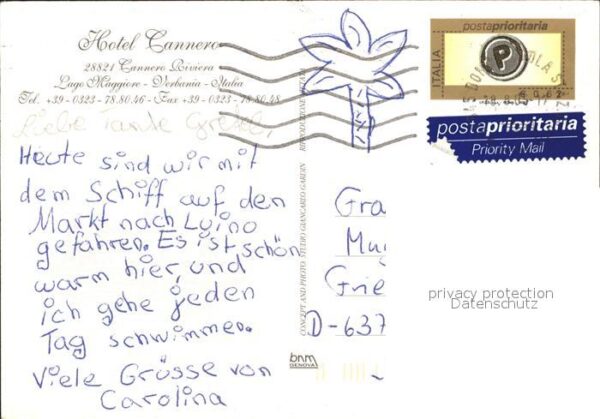 Hotel Cannero
28821 Cannero Riviera
Lago Maggiore - Verbania - Italia
Tel. +39 - 0323 - 78.80.46 - Fax +39 - 0323 - 78.80.48
Liebe Tante Gretel,
Heute sind wir mit
dem Schiff auf den
Markt nach Luino
gefahren. Es ist schön
warm hier, und
ich gehe jeden
Tag schwimmen.
Viele Grüsse von
Carolina
CONCEPT AND PHOTO: STUDIO GIANCARLO GARDIN
bnm
GENOVA
postaprioritaria
ITALIA
P
€ 0,62
postaprioritaria
Priority Mail
Gra
Mu
Grie
D-637
privacy protection
Datenschutz